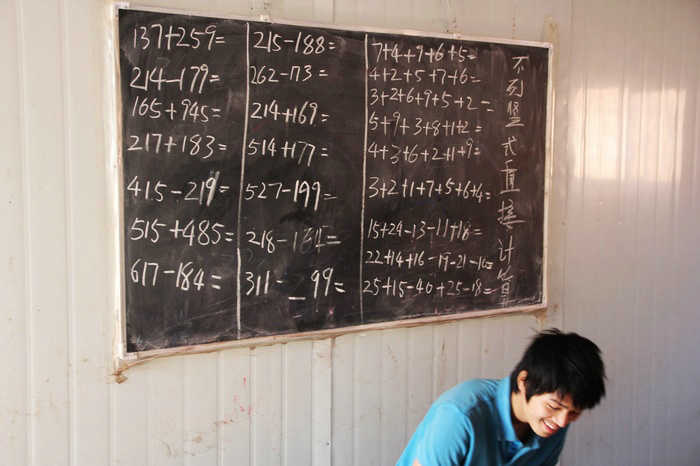 137+259=
214-179=
165+945=
217+183=
415-219=
515+485=
617-184=
215-188=
262-73=
214+169=
514+177=
527-199=
218-
311-_99=
7+4+9+6+5=
4+2+5+7+6=
3+2+6+9+5+2=
5+9+3+8+1+2=
4+3+6+2+1+9=
3+2+1+7+5+6+4=
15+24-13-11+18=
22+14+16-19-21-10=
25+15-40+25-18=
不列竖式直接计算